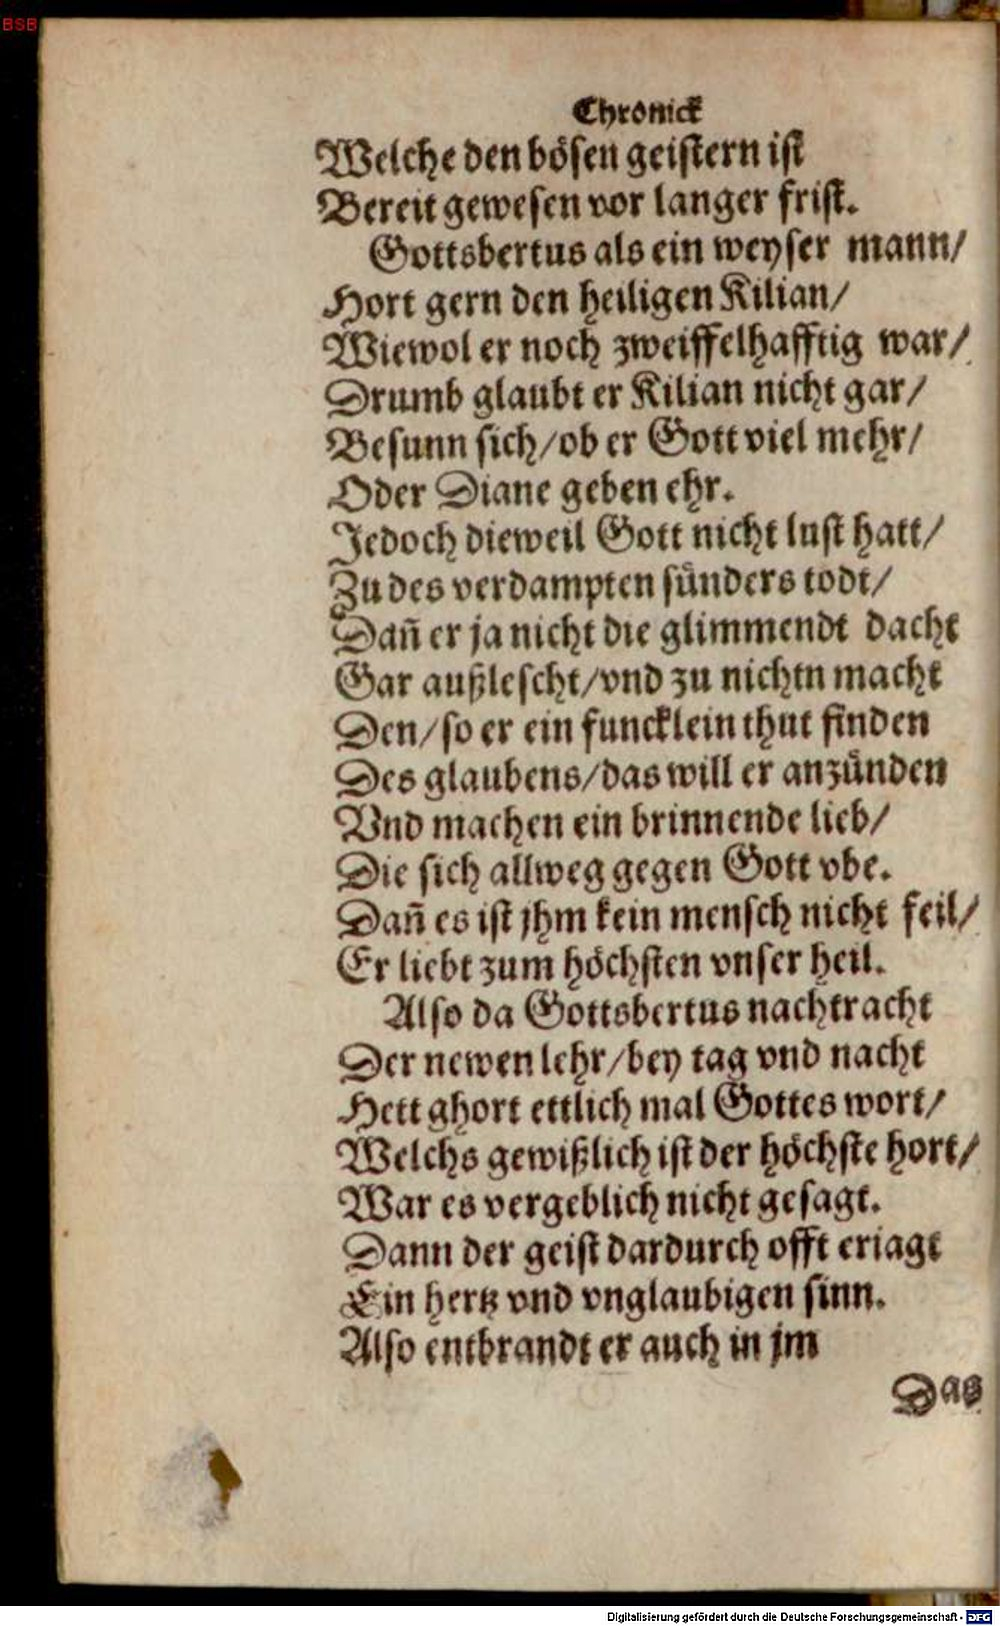 BSB
Chronick
Welche den bösen geistern ist
Bereit gewesen vor langer frist.
Gottsbertus als ein weyser mann/
Hort gern den heiligen Kilian/
Wiewol er noch zweiffelhafftig war/
Drumb glaubt er Kilian nicht gar/
Besunn sich/ob er Gott viel mehr/
Oder Diane geben ehr.
Jedoch dieweil Gott nicht lust hatt/
Zu des verdampten sünders todt/
Dañ er ja nicht die glimmendt dacht
Gar außlescht/vnd zu nichtn macht
Den/so er ein funcklein thut finden
Des glaubens/das will er anzünden
Vnd machen ein brinnende lieb/
Die sich allweg gegen Gott vbe.
Dañ es ist jhm kein mensch nicht feil/
Er liebt zum höchsten vnser heil.
Also da Gottsbertus nachtracht
Der newen lehr/bey tag vnd nacht
Hett ghort ettlich mal Gottes wort/
Welchs gewißlich ist der höchste hort/
War es vergeblich nicht gesagt.
Dann der geist dardurch offt eriagt
Ein hertz vnd vnglaubigen sinn.
Also entbrandt er auch in jm
Das
Digitalisierung gefördert durch die Deutsche Forschungsgemeinschaft - DFG